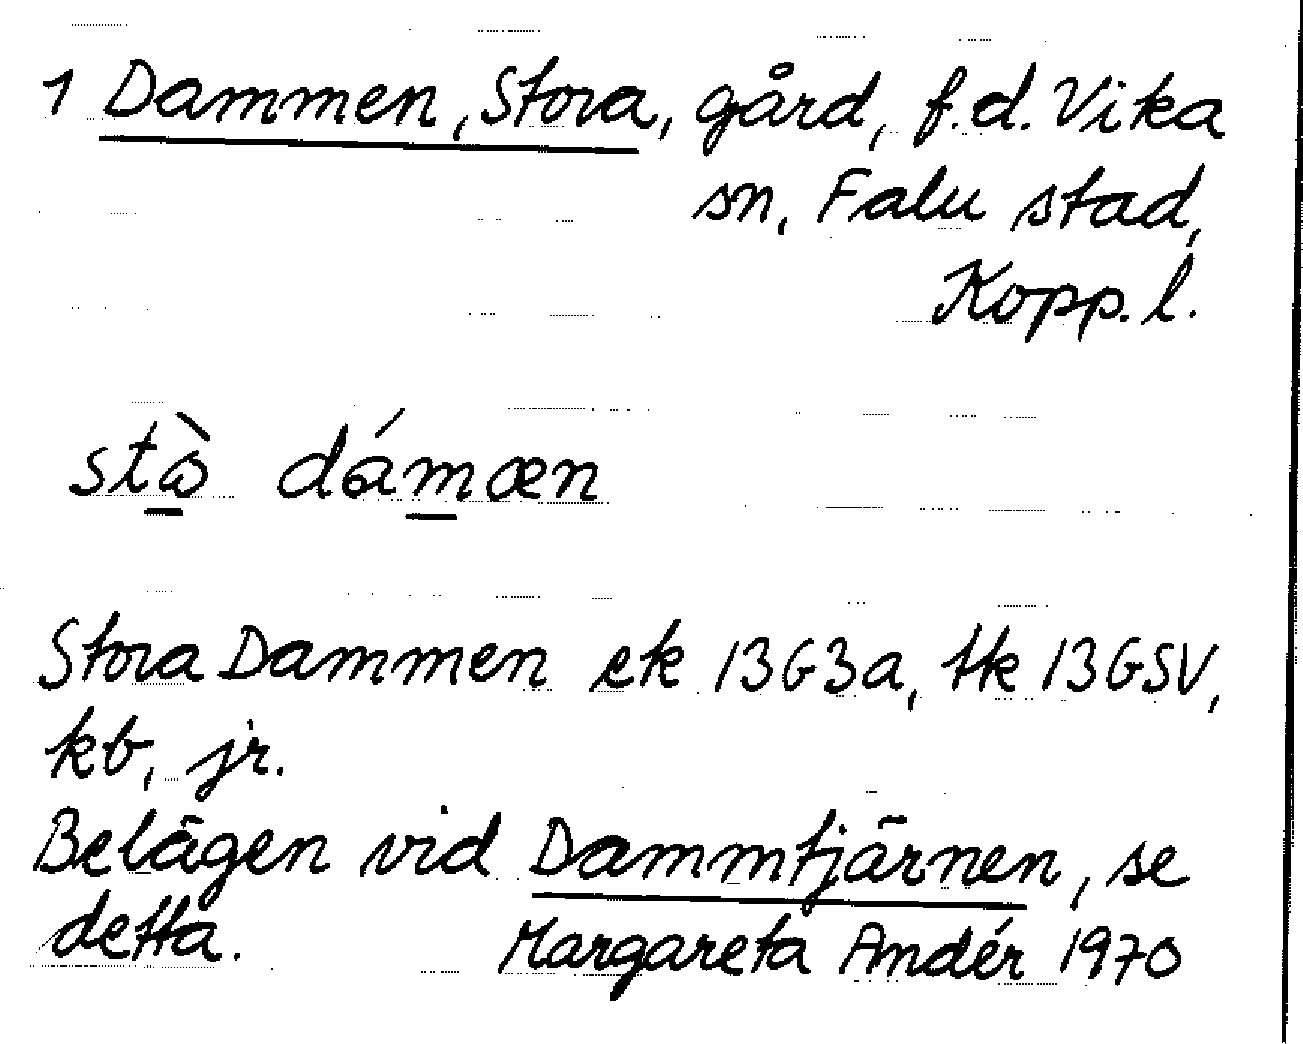 1 Dammen, Stora, gård, f.d. Vika
sn, Falu stad,
Kopp. l.
dámæn
Stora Dammen ek 13G3a, tk 13GSV,
kb, jr.
Belägen vid Dammtjärnen, se
detta. Margareta Andér 1970